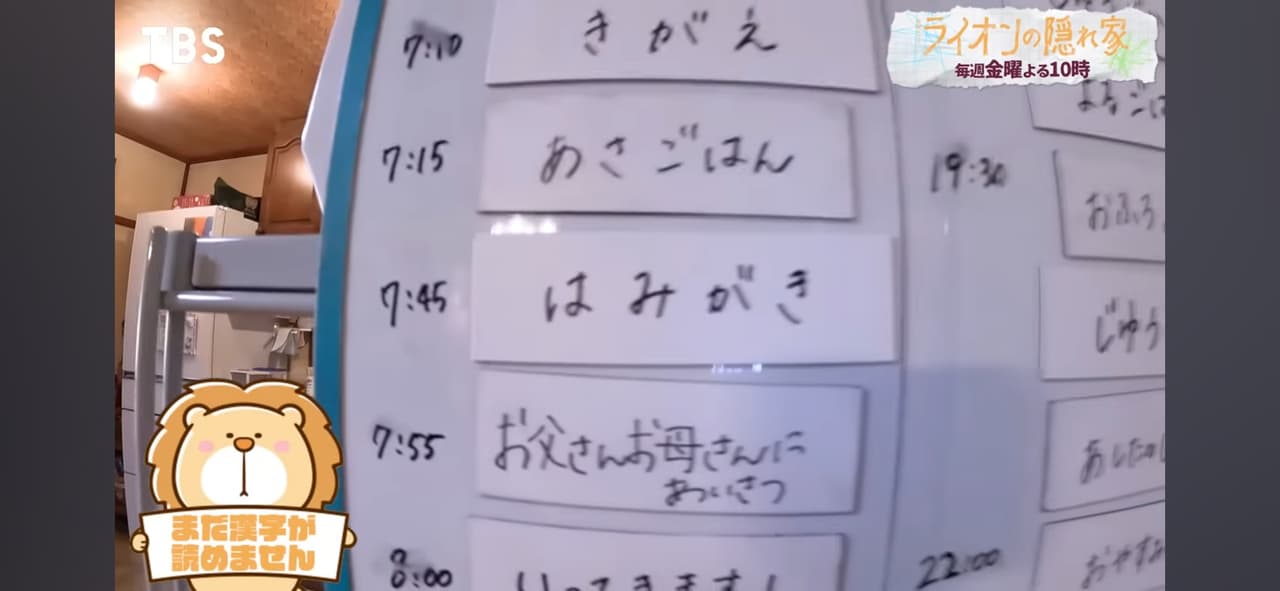 TBS
ライオンの隠れ家
毎週金曜よる10時
7:10 きがえ
7:15 あさごはん
7:45 はみがき
7:55 お父さんお母さんに
あいさつ
8:00 いってきます!
よるごは
19:30 おふろ
じゆう
あしたの
22:00 おやすみ
まだ漢字が
読めません